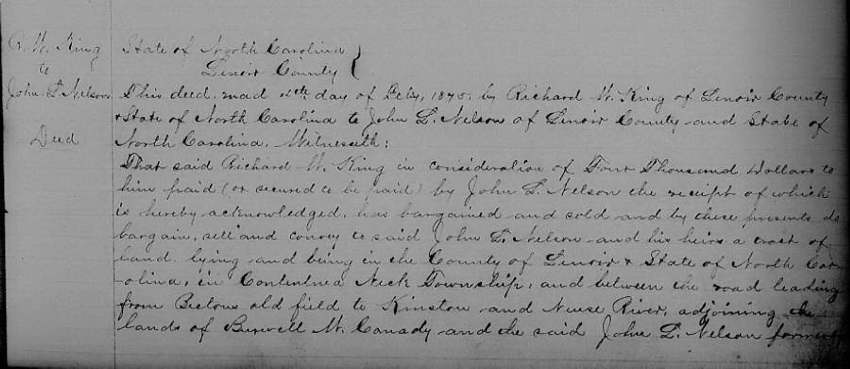 R. W. King
to
John L. Nelson
Deed
State of North Carolina
Lenoir County
This deed, mad 4th day of Feby, 1875, by Richard W. King of Lenoir County
& State of North Carolina to John L. Nelson of Lenoir County and State of
North Carolina, Witnesseth:
That said Richard W. King in consideration of Four Thousand Dollars to
him paid (or secured to be paid) by John L. Nelson the receipt of which
is hereby acknowledged, has bargained and sold and by these presents do
bargain, sell and convey to said John L. Nelson and his heirs a tract of
land lying and being in the County of Lenoir & State of North Car-
olina, in Contentnea Neck Township, and between the road leading
from old field to Kinston and Neuse River, adjoining the
lands of Burwell W. Canady and the said John L. Nelson